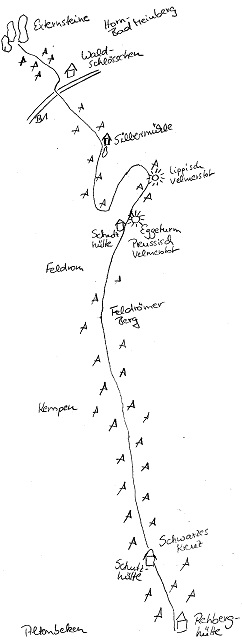 Externsteine
Horn-
Bad Meinberg
Wald-
schlösschen
B1
Silbermühle
Lippisch
Velmerstot
Eggeturm
Preussisch
Velmerstot
Schutz
hütte
Feldrom
Feldrömer
Berg
Kempen
Schwarzes
Kreuz
Schutz-
hütte
Rehberg-
hütte
Altenbeken